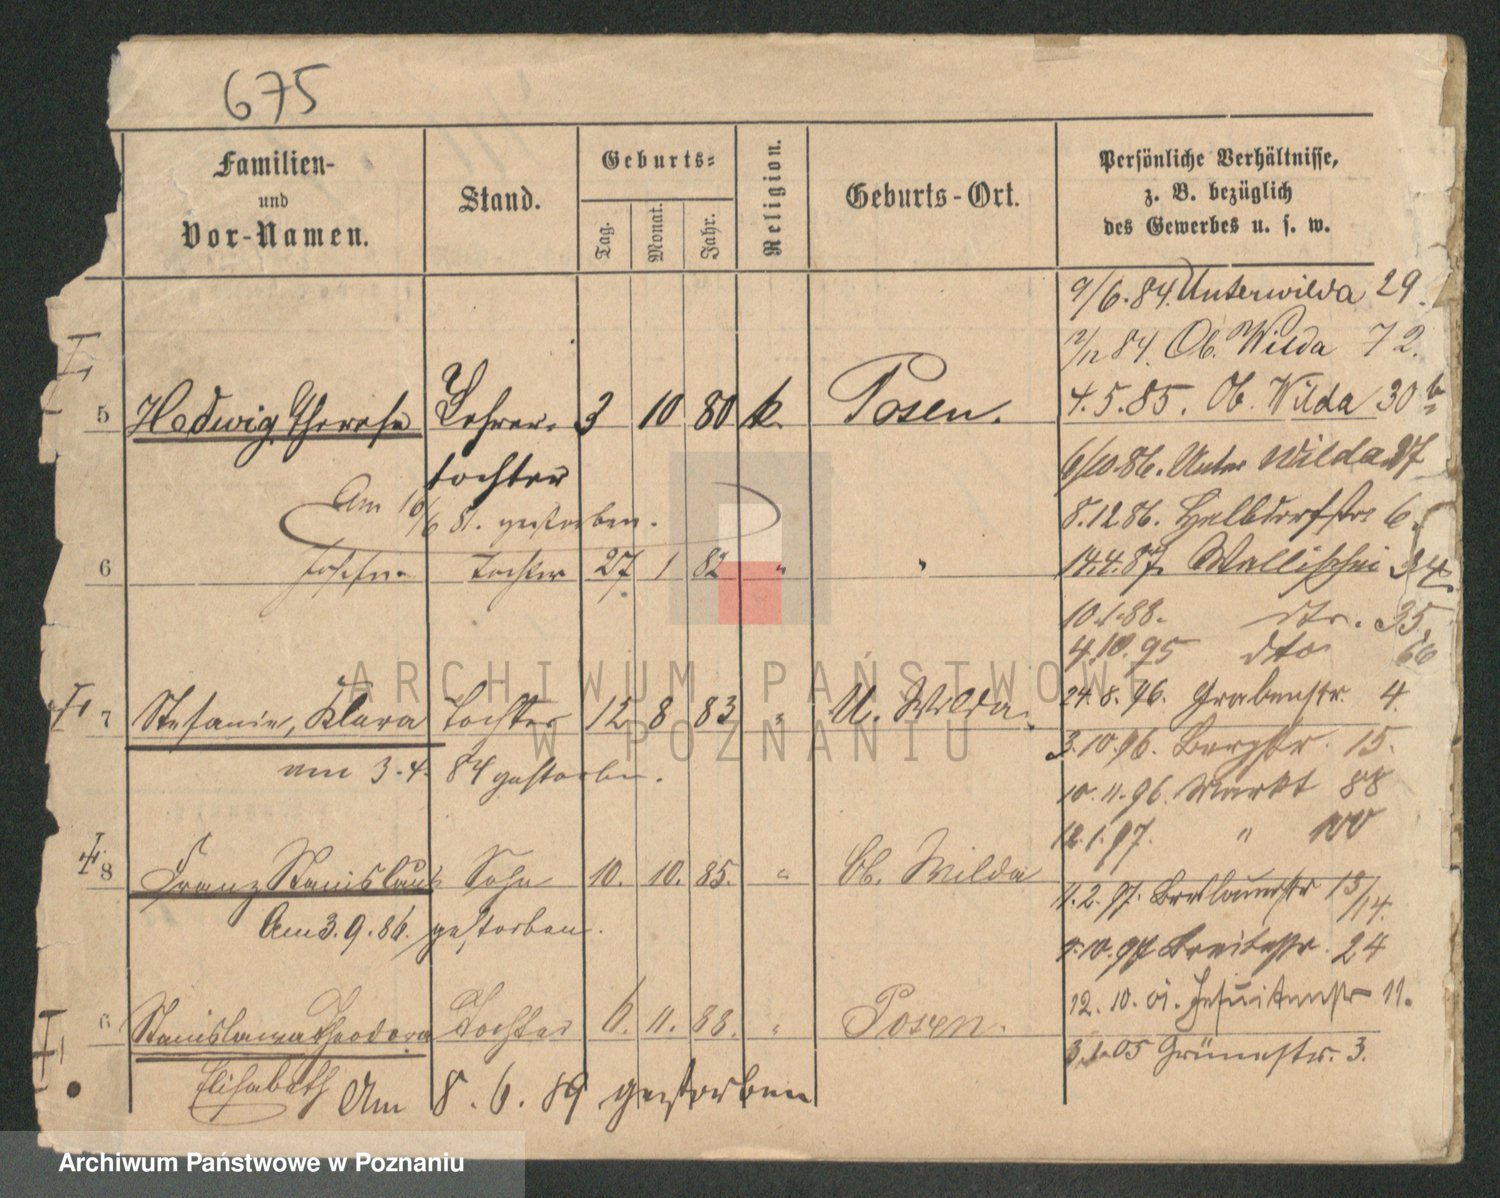 675
Familien-
und
Vor-Namen.
Stand.
Geburts-
Tag.
Monat.
Jahr.
Religion.
Geburts-Ort.
Persönliche Verhältnisse,
z. B. bezüglich
des Gewerbes u. s. w.
9/6.84. Unterwilda 29.
84. Ob. Wilda 72.
4.5.85. Ob. Wilda 30
5 Hedwig Therese Lehrer- 3 10 80 k. Posen.
tochter
6/10.86. Unter Wilda 27
Am 10/6 81. gestorben.
8.12.86. Halbdorfstr 6.
6 Josefine Tochter 27 1 82 " "
14.4.87. Wallischei
10.1.88. dto. 35
4.10.95 dto 66
24.8.96. Grabenstr. 4
7 Stefanie, Klara Tochter 12 8 83 " U. Wilda.
3.10.96. Bergstr. 15.
am 3.4. 84 gestorben.
10.11.96. Markt 88
12.1.97. " 100
8 Franz Stanislaus Sohn 10. 10. 85. " Ob. Wilda
11.2.97. Breslauerstr 13/14.
Am 3.9.86. gestorben.
10.97 Breitestr. 24
12.10.01. Jesuitenstr 11.
6 Stanislawa Theodora Tochter 6. 11. 88. " Posen.
3.1.05 Grünestr. 3.
Elisabeth Am 8.6.89 gestorben
ARCHIWUM PAŃSTWOWE
W POZNANIU
Archiwum Państwowe w Poznaniu